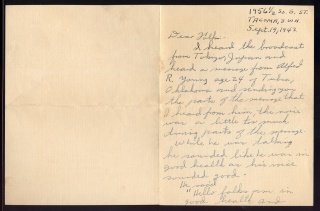 1956½ So. G. St.
Tacoma, 2 Wn.
Sept. 19, 1943
Dear
I heard the broadcast
from Tokyo, Japan and
heard a message from Alfred
R. Young age 24 of Tulsa,
Oklahoma and sending you
the parts of the message that
I heard from him, the noise
was a little too much
during parts of the message.
While he was talking
he sounded like he was in
good health as his voice
sounded good.
He said
"Hello folks I'm in
good health and